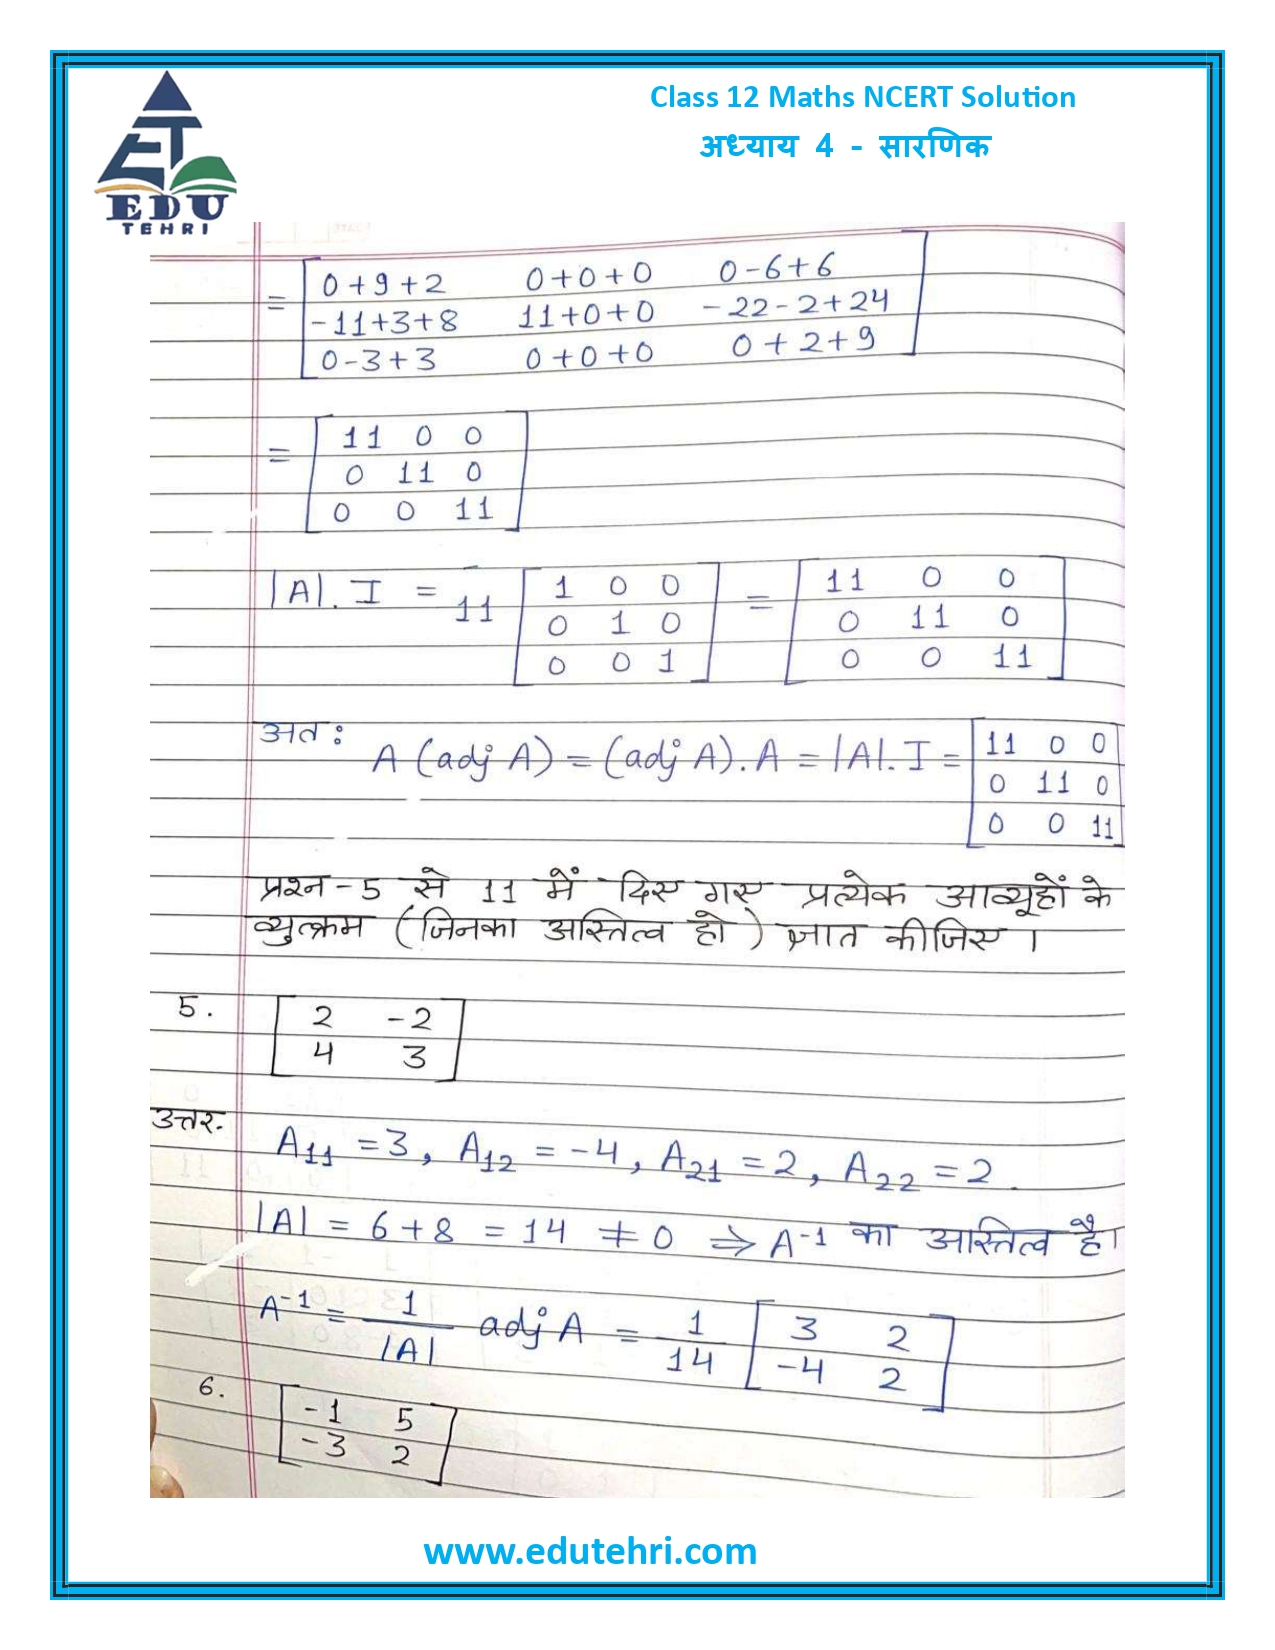 Class 12 Maths NCERT Solution
अध्याय 4 - सारणिक
EDU
TEHRI
= [ 0+9+2 0+0+0 0-6+6
-11+3+8 11+0+0 -22-2+24
0-3+3 0+0+0 0+2+9 ]
= [ 11 0 0
0 11 0
0 0 11 ]
|A|. I = 11 [ 1 0 0
0 1 0
0 0 1 ] = [ 11 0 0
0 11 0
0 0 11 ]
अतः
A (adj A) = (adj A). A = |A|. I = [ 11 0 0
0 11 0
0 0 11 ]
प्रश्न-5 से 11 में दिए गए प्रत्येक आव्यूहों के
व्युत्क्रम (जिनका अस्तित्व हो) ज्ञात कीजिए ।
5. [ 2 -2
4 3 ]
उत्तर.
A₁₁ = 3, A₁₂ = -4, A₂₁ = 2, A₂₂ = 2.
|A| = 6+8 = 14 ≠ 0 ⇒ A⁻¹ का अस्तित्व है।
A⁻¹ = 1/|A| adj A = 1/14 [ 3 2
-4 2 ]
6. [ -1 5
-3 2 ]
www.edutehri.com